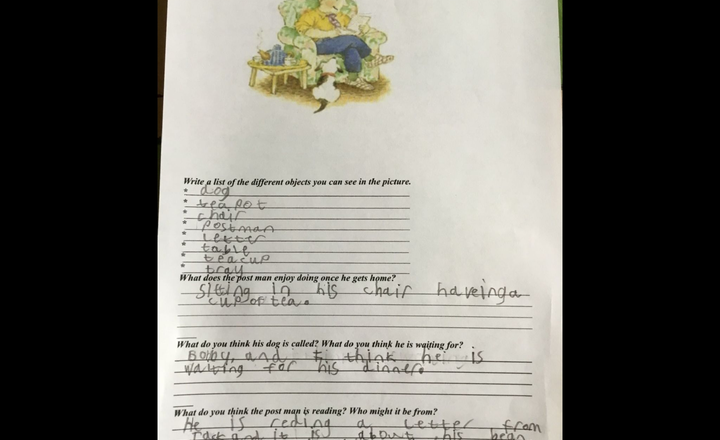 Write a list of the different objects you can see in the picture.
* dog
* teapot
* chair
* postman
* letter
* table
* teacup
* tray
What does the post man enjoy doing once he gets home?
sitting in his chair haveing a
cup of tea.
What do you think his dog is called? What do you think he is waiting for?
Bobby, and I think he is
waiting for his dinner.
What do you think the post man is reading? Who might it be from?
He is reding a letter from
and it is about his